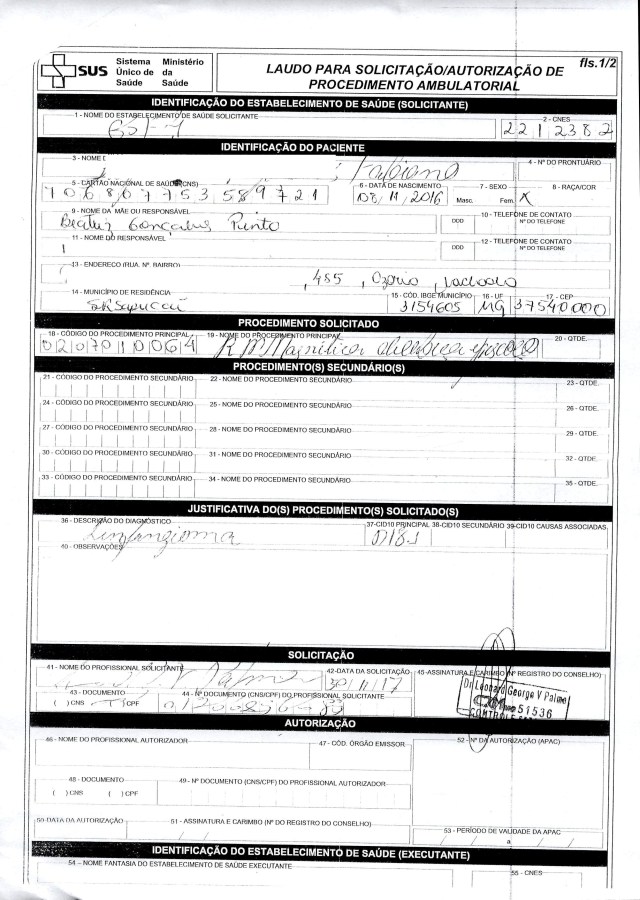 fls.1/2
SUS Sistema Único de Saúde Ministério da Saúde
LAUDO PARA SOLICITAÇÃO/AUTORIZAÇÃO DE
PROCEDIMENTO AMBULATORIAL
IDENTIFICAÇÃO DO ESTABELECIMENTO DE SAÚDE (SOLICITANTE)
1 - NOME DO ESTABELECIMENTO DE SAÚDE SOLICITANTE 2 - CNES
2212382
IDENTIFICAÇÃO DO PACIENTE
3 - NOME D 4 - Nº DO PRONTUÁRIO
Fabiana
5 - CARTÃO NACIONAL DE SAÚDE (CNS) 6 - DATA DE NASCIMENTO 7 - SEXO 8 - RAÇA/COR
706807753589721 08/11/2016 Masc. Fem. X
9 - NOME DA MÃE OU RESPONSÁVEL 10 - TELEFONE DE CONTATO
Beatriz Goncalves Pinto DDD Nº DO TELEFONE
11 - NOME DO RESPONSÁVEL 12 - TELEFONE DE CONTATO
DDD Nº DO TELEFONE
13 - ENDEREÇO (RUA, Nº, BAIRRO)
, 485,
14 - MUNICÍPIO DE RESIDÊNCIA 15 - CÓD. IBGE MUNICÍPIO 16 - UF 17 - CEP
3154605 MG 37540000
PROCEDIMENTO SOLICITADO
18 - CÓDIGO DO PROCEDIMENTO PRINCIPAL 19 - NOME DO PROCEDIMENTO PRINCIPAL 20 - QTDE.
0207010064
PROCEDIMENTO(S) SECUNDÁRIO(S)
21 - CÓDIGO DO PROCEDIMENTO SECUNDÁRIO 22 - NOME DO PROCEDIMENTO SECUNDÁRIO 23 - QTDE.
24 - CÓDIGO DO PROCEDIMENTO SECUNDÁRIO 25 - NOME DO PROCEDIMENTO SECUNDÁRIO 26 - QTDE.
27 - CÓDIGO DO PROCEDIMENTO SECUNDÁRIO 28 - NOME DO PROCEDIMENTO SECUNDÁRIO 29 - QTDE.
30 - CÓDIGO DO PROCEDIMENTO SECUNDÁRIO 31 - NOME DO PROCEDIMENTO SECUNDÁRIO 32 - QTDE.
33 - CÓDIGO DO PROCEDIMENTO SECUNDÁRIO 34 - NOME DO PROCEDIMENTO SECUNDÁRIO 35 - QTDE.
JUSTIFICATIVA DO(S) PROCEDIMENTO(S) SOLICITADO(S)
36 - DESCRIÇÃO DO DIAGNÓSTICO 37-CID10 PRINCIPAL 38-CID10 SECUNDÁRIO 39-CID10 CAUSAS ASSOCIADAS
Linfangioma D18.1
40 - OBSERVAÇÕES
SOLICITAÇÃO
41 - NOME DO PROFISSIONAL SOLICITANTE 42-DATA DA SOLICITAÇÃO 45-ASSINATURA E CARIMBO (Nº REGISTRO DO CONSELHO)
30/11/17
Dr. Leonard George V Palmer
51536
43 - DOCUMENTO 44 - Nº DOCUMENTO (CNS/CPF) DO PROFISSIONAL SOLICITANTE
( ) CNS ( ) CPF
AUTORIZAÇÃO
46 - NOME DO PROFISSIONAL AUTORIZADOR 47 - CÓD. ÓRGÃO EMISSOR 52 - Nº DA AUTORIZAÇÃO (APAC)
48 - DOCUMENTO 49 - Nº DOCUMENTO (CNS/CPF) DO PROFISSIONAL AUTORIZADOR
( ) CNS ( ) CPF
50-DATA DA AUTORIZAÇÃO 51 - ASSINATURA E CARIMBO (Nº DO REGISTRO DO CONSELHO) 53 - PERÍODO DE VALIDADE DA APAC
a
IDENTIFICAÇÃO DO ESTABELECIMENTO DE SAÚDE (EXECUTANTE)
54 – NOME FANTASIA DO ESTABELECIMENTO DE SAÚDE EXECUTANTE 55 - CNES